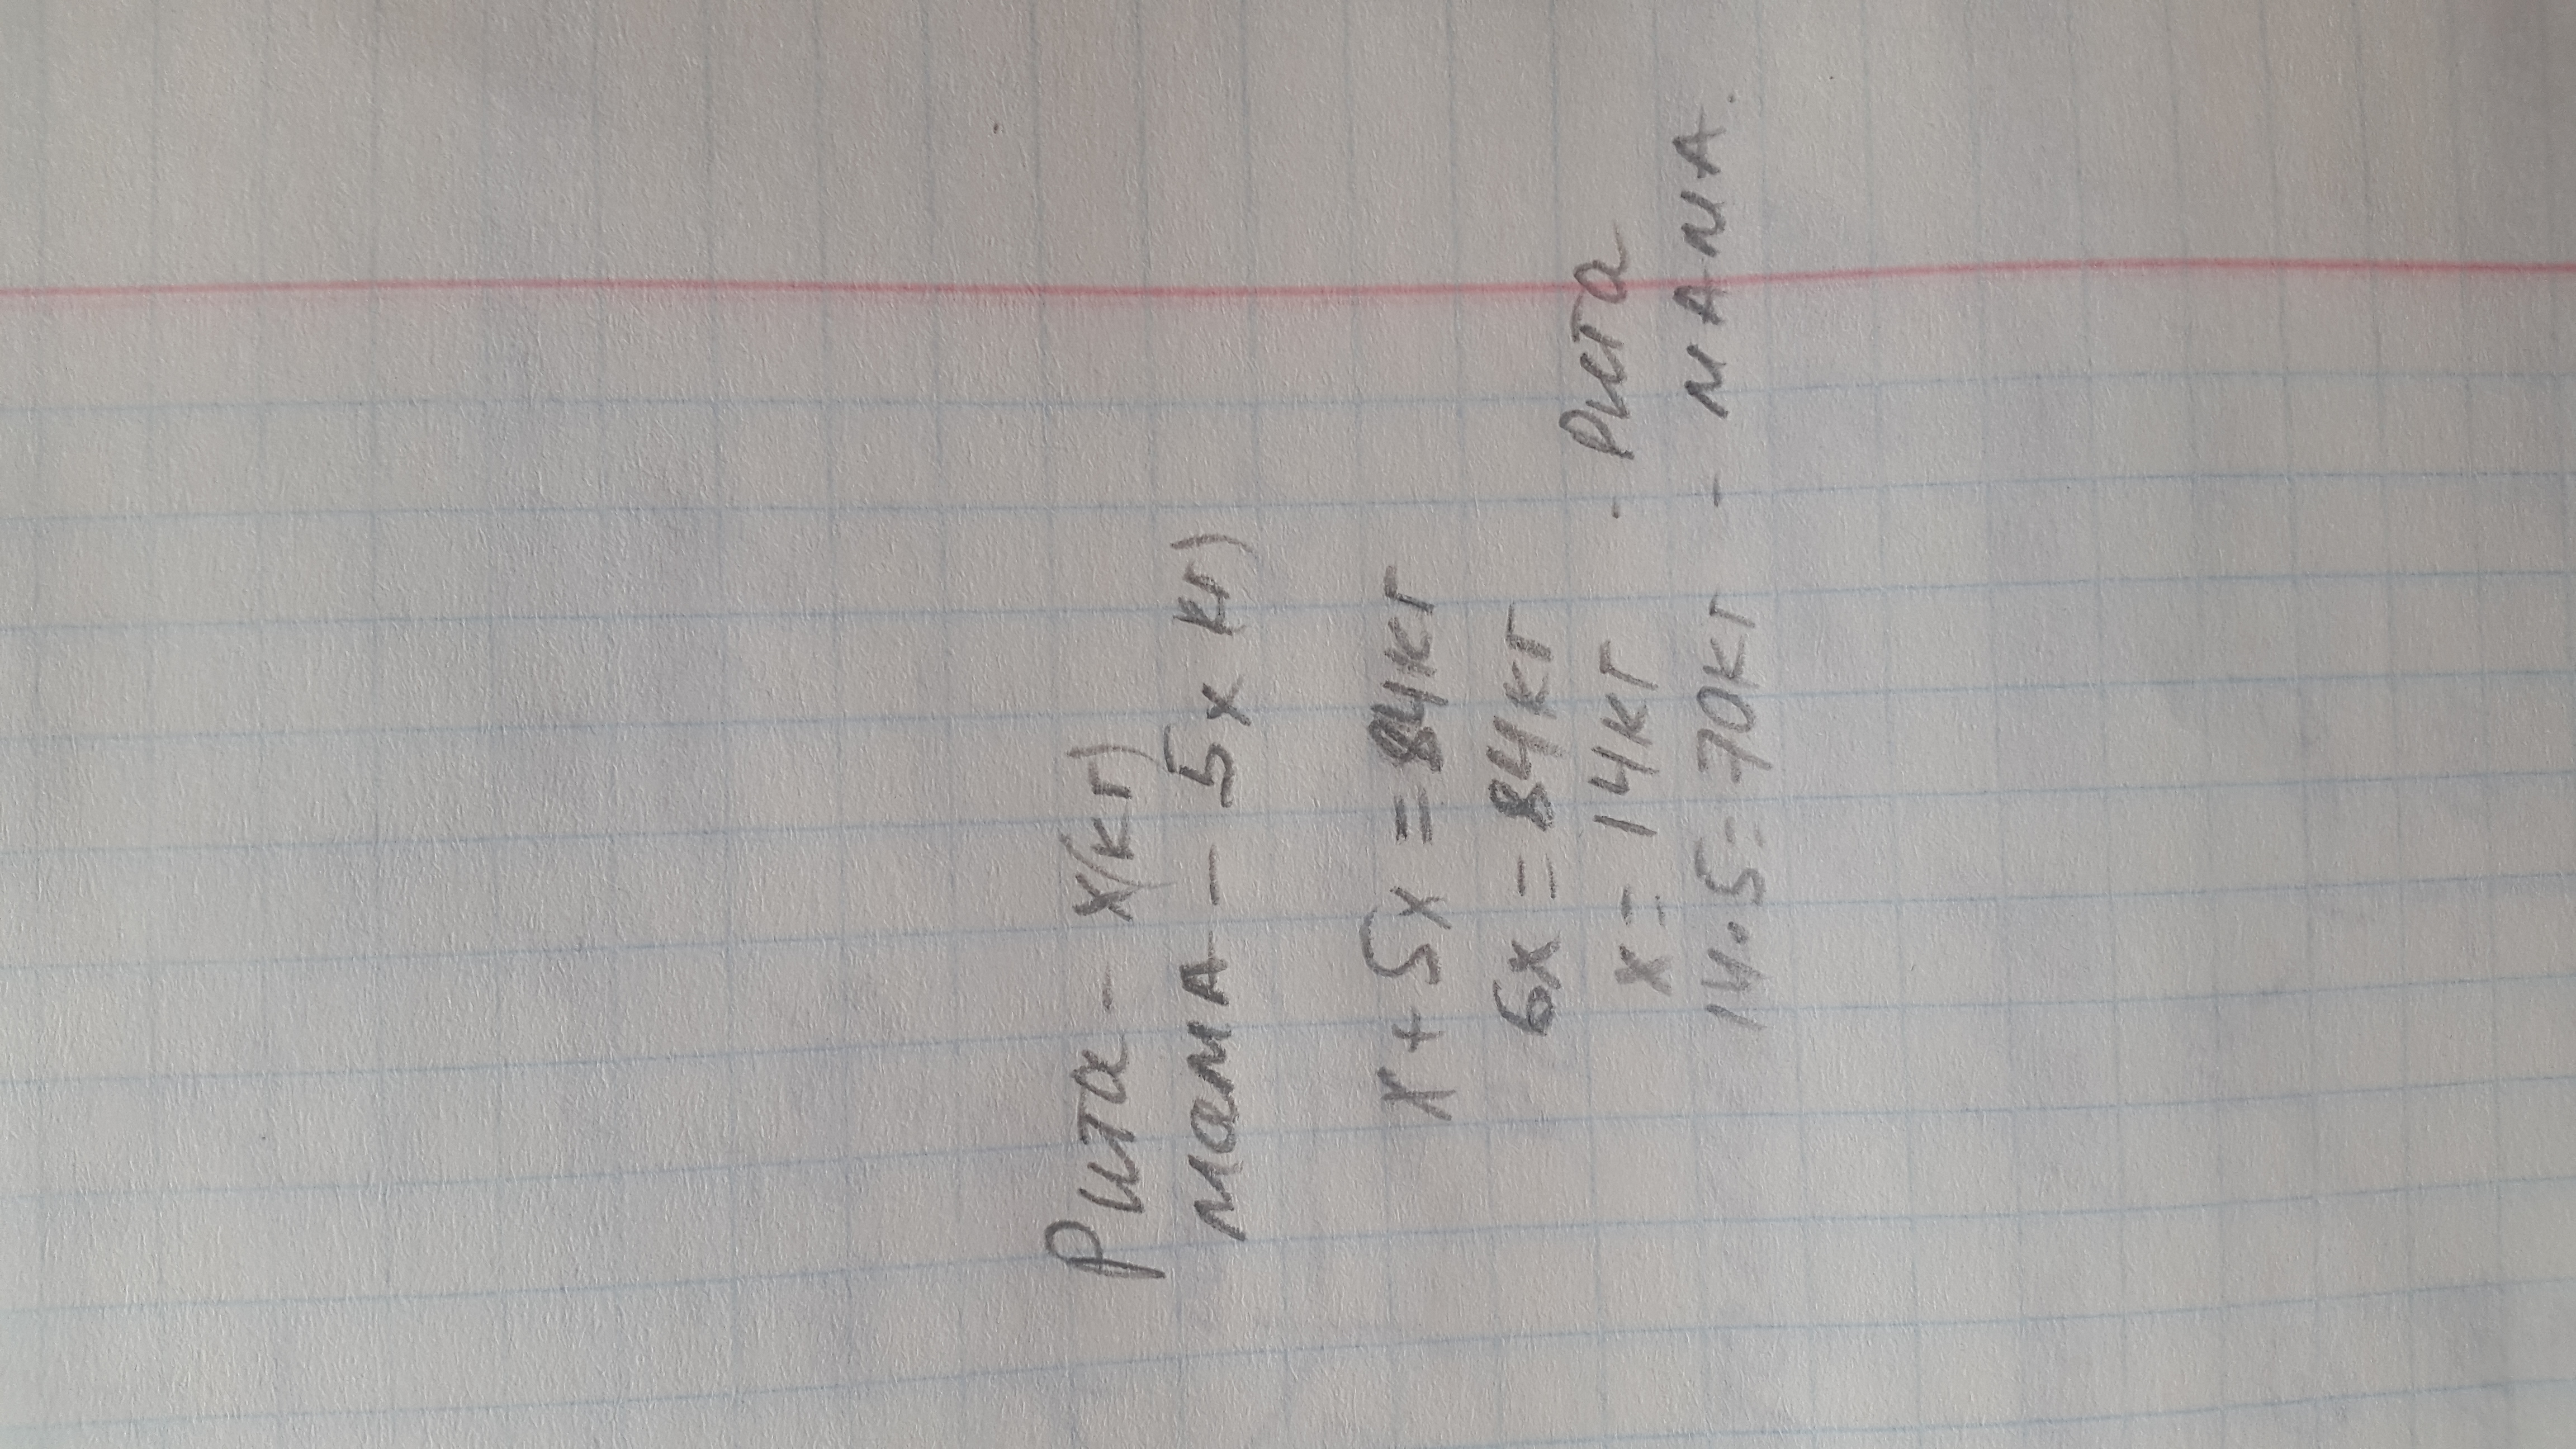 Рита - х(кг)
мама - 5х кг)
х + 5х = 84кг
6х = 84кг
х = 14кг - Рита
14·5=70кг - мама.